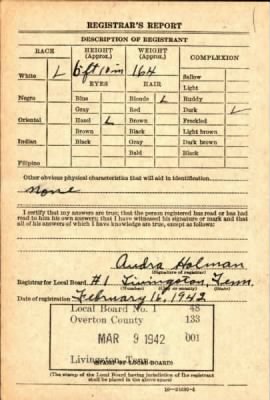 REGISTRAR'S REPORT
DESCRIPTION OF REGISTRANT
RACE HEIGHT (Approx.) WEIGHT (Approx.) COMPLEXION
White L 6 ft 10 in 164 Sallow
EYES HAIR Light
Negro Blue Blonde L Ruddy
Gray Red Dark L
Oriental Hazel L Brown Freckled
Brown Black Light brown
Indian Black Gray Dark brown
Bald Black
Filipino
Other obvious physical characteristics that will aid in identification
None
I certify that my answers are true; that the person registered has read or has had
to him his own answers; that I have witnessed his signature or mark and that
all of his answers of which I have knowledge are true, except as follows:
Audra Holman
(Signature of registrar)
Registrar for Local Board #1 Livingston, Tenn.
(Number) (City or county) (State)
Date of registration February 16, 1942
Local Board No. 1 48
Overton County 133
MAR 9 1942 001
Livingston, Tenn
(STAMP OF LOCAL BOARD)
(The stamp of the Local Board having jurisdiction of the registrant
shall be placed in the above space)